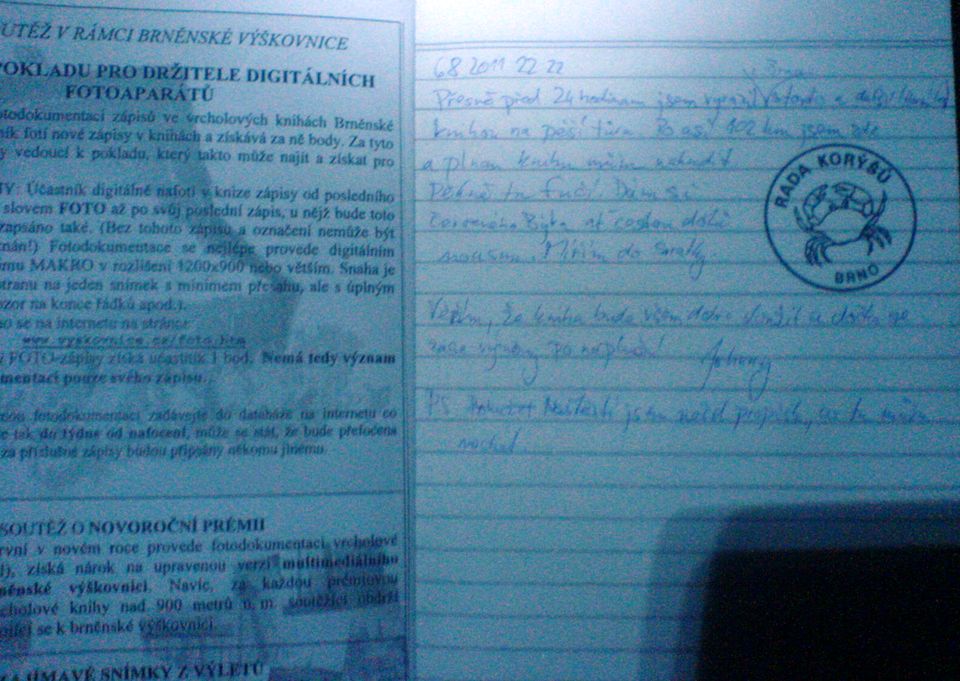 OUTĚŽ V RÁMCI BRNĚNSKÉ VÝŠKOVNICE
POKLADU PRO DRŽITELE DIGITÁLNÍCH
FOTOAPARÁTŮ
otodokumentaci zápisů ve vrcholových knihách Brněnské
ník fotí nové zápisy v knihách a získává za ně body. Za tyto
y vedoucí k pokladu, který takto může najít a získat pro
TY: Účastník digitálně nafotí v knize zápisy od posledního
slovem FOTO až po svůj poslední zápis, u nějž bude toto
zapsáno také. (Bez tohoto zápisu a označení nemůže být
znán!) Fotodokumentace se nejlépe provede digitálním
imu MAKRO v rozlišení 1200x900 nebo větším. Snaha je
stranu na jeden snímek s minimem přesahu, ale s úplným
ozor na konce řádků apod.).
no se na internetu na stránce
www.vyskovnice.cz/foto.htm
í FOTO-zápisy získá účastník 1 bod. Nemá tedy význam
mentaci pouze svého zápisu...
fotodokumentaci zadávejte do databáze na internetu co
e tak do týdne od nafocení, může se stát, že bude přefocena
za příslušné zápisy budou připsány někomu jinému.
SOUTĚŽ O NOVOROČNÍ PRÉMII
první v novém roce provede fotodokumentaci vrcholové
), získá nárok na upravenou verzi multimediálního
něnské výškovnici. Navíc, za každou prémiovou
rcholové knihy nad 900 metrů n. m. soutěžící obdrží
ující se k brněnské výškovnici.
ZAJÍMAVÉ SNÍMKY Z VÝLETŮ
6 8 2011 22 22
Přesně před 24 hodinami jsem vyrazil z Brna
knihou na pěší túru. Po asi 102 km jsem zde
a plnou knihu můžu nahradit
Pěkně tu fučí. Dám si
červeného Býka ať
Mířím do Svratky.
Věřím, že kniha bude všem dobře sloužit a dočká se
zase výměny po naplnění Johnny
PS Naštěstí jsem našel propisku, co tu můžu
nechat...
RADA KORÝŠŮ
BRNO